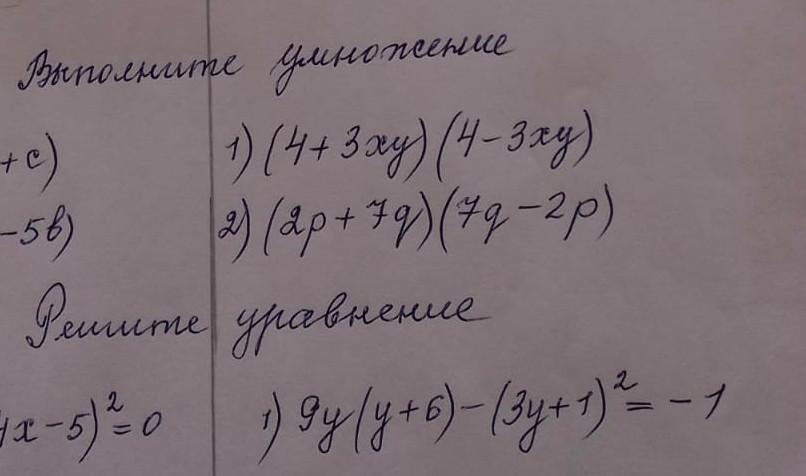 Выполните умножение
+c) 1) (4+3xy)(4-3xy)
-5b) 2) (2p+7q)(7q-2p)
Решите уравнение
x-5)²=0 1) 9y(y+6)-(3y+1)²=-1